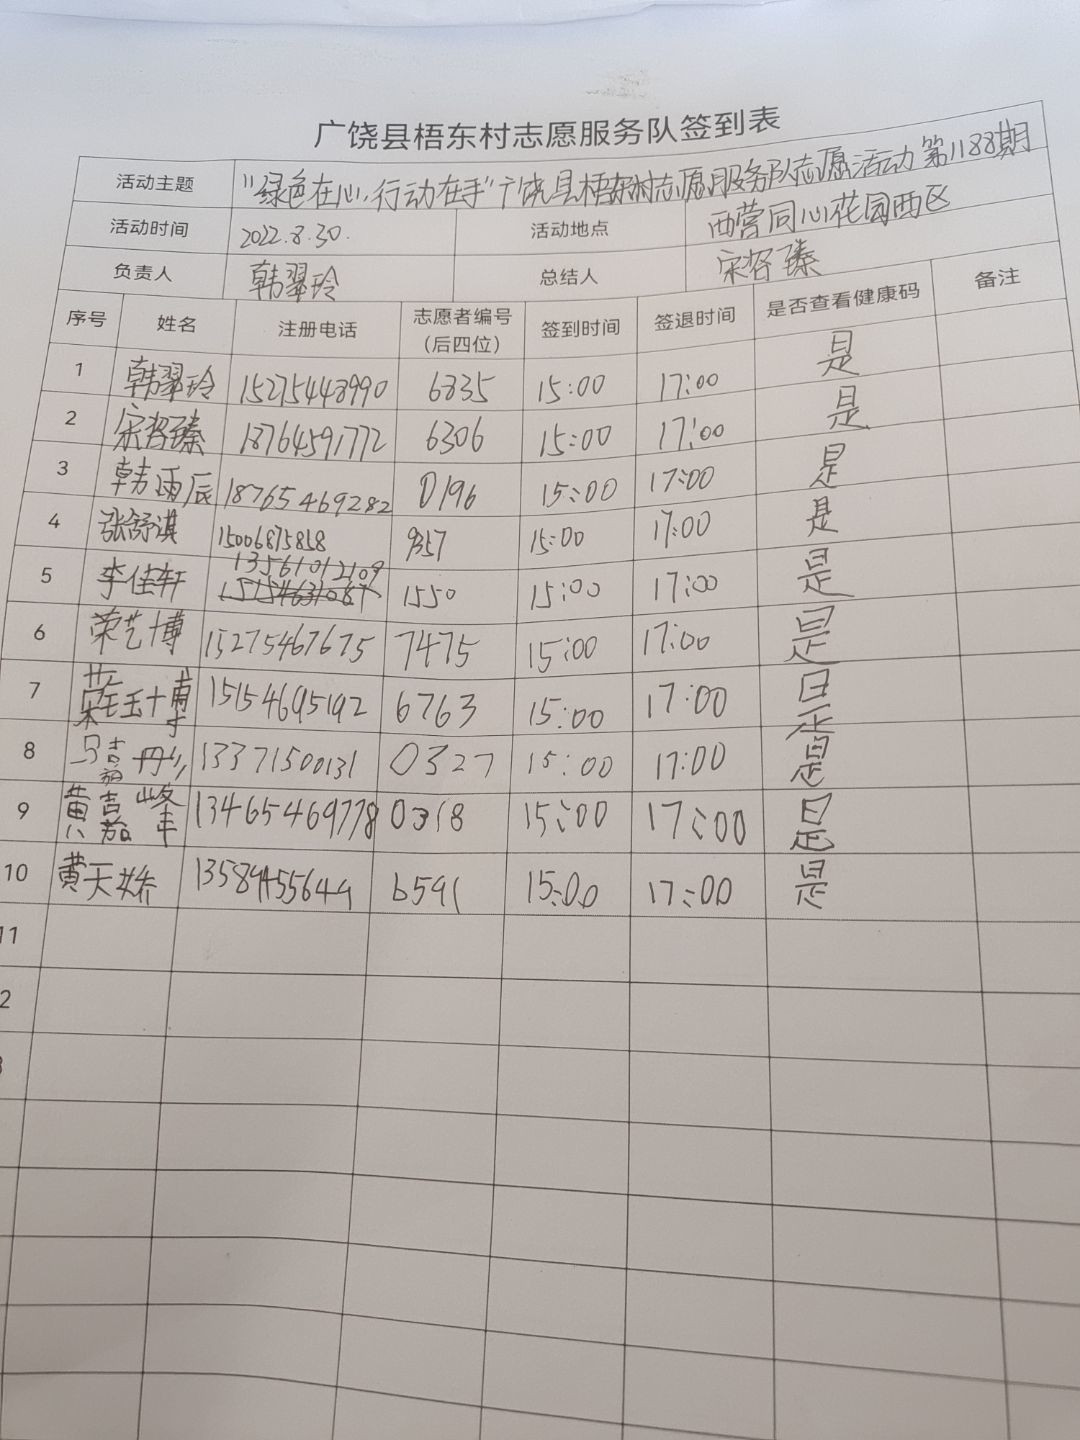 广饶县梧东村志愿服务队签到表
活动主题 "绿色在心,行动在手"广饶县梧东村志愿服务队志愿活动第1188期
活动时间 2022.8.30. 活动地点 西营同心花园西区
负责人 韩翠玲 总结人 宋容臻
序号 姓名 注册电话 志愿者编号(后四位) 签到时间 签退时间 是否查看健康码 备注
1 韩翠玲 15275448990 6835 15:00 17:00 是
2 宋容臻 18764591772 6306 15:00 17:00 是
3 韩雨辰 18765469282 0196 15:00 17:00 是
4 张舒淇 15006875858 9357 15:00 17:00 是
5 李佳轩 13561012109 1550 15:00 17:00 是
6 荣艺博 15275467675 7475 15:00 17:00 是
7 荣钰博 15154695192 6763 15:00 17:00 是
8 马嘉彤 13371500131 0327 15:00 17:00 是
9 黄嘉峰 13465469778 0318 15:00 17:00 是
10 黄天娇 13589455649 6591 15:00 17:00 是
11
2